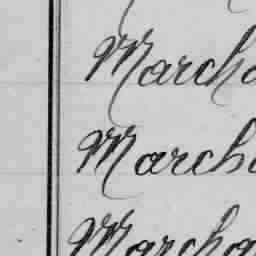 Marcha
March
Marcha